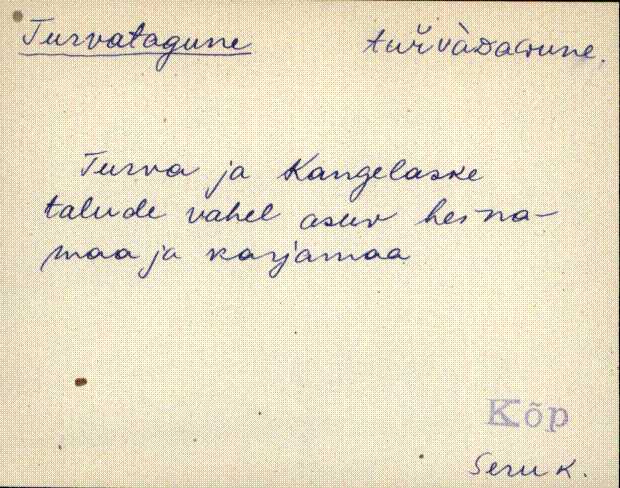 Turvatagune turvàDaGune.
Turva ja Kangelaske
talude vahel asuv heina-
maa ja karjamaa
Kõp
Seru k.